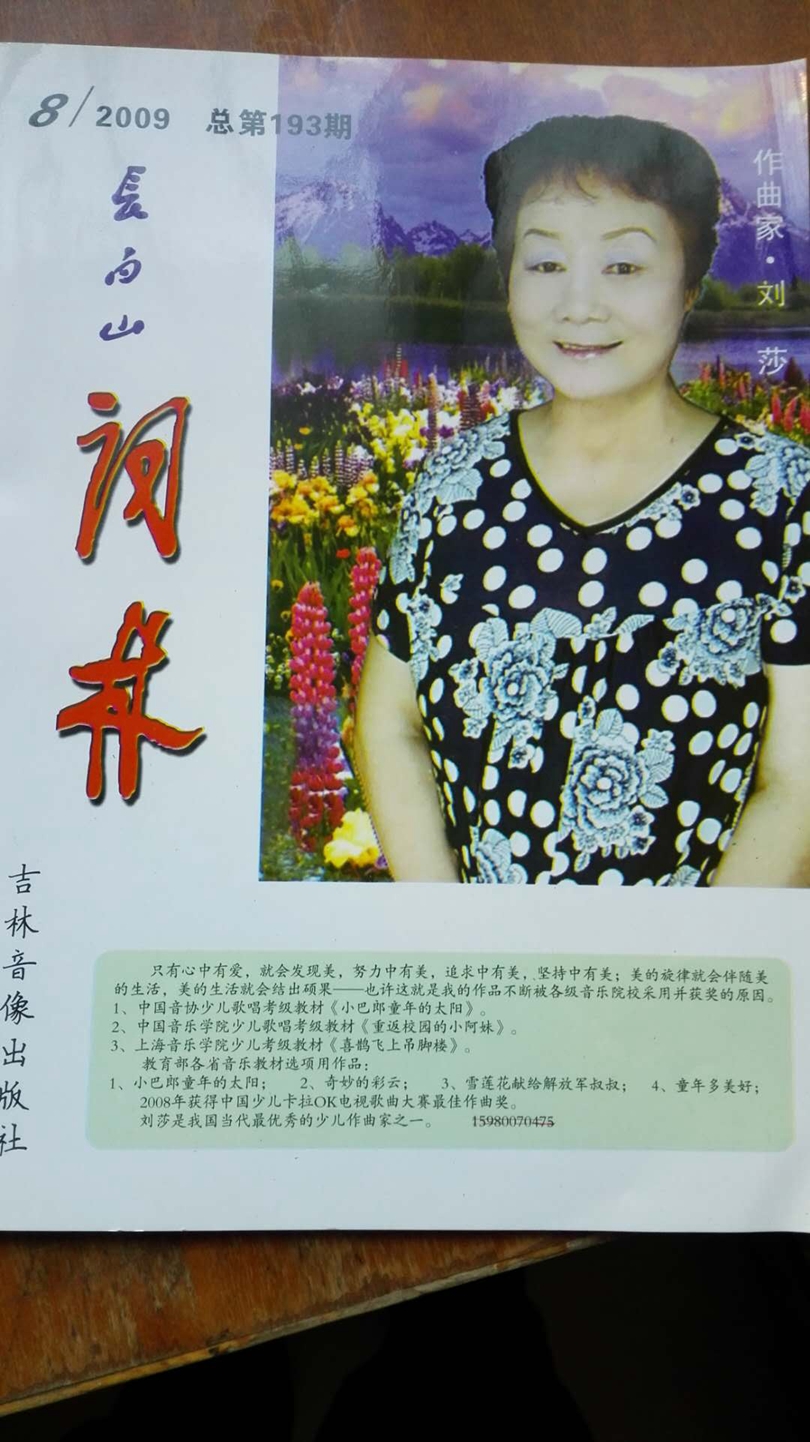 8/2009 总第193期
長白山
词林
作曲家·刘莎
吉林音像出版社
只有心中有爱，就会发现美，努力中有美，追求中有美，坚持中有美；美的旋律就会伴随美
的生活，美的生活就会结出硕果——也许这就是我的作品不断被各级音乐院校采用并获奖的原因。
1、中国音协少儿歌唱考级教材《小巴郎童年的太阳》。
2、中国音乐学院少儿歌唱考级教材《重返校园的小阿妹》。
3、上海音乐学院少儿考级教材《喜鹊飞上吊脚楼》。
教育部各省音乐教材选项用作品：
1、小巴郎童年的太阳； 2、奇妙的彩云； 3、雪莲花献给解放军叔叔； 4、童年多美好；
2008年获得中国少儿卡拉OK电视歌曲大赛最佳作曲奖。
刘莎是我国当代最优秀的少儿作曲家之一。 15980070475